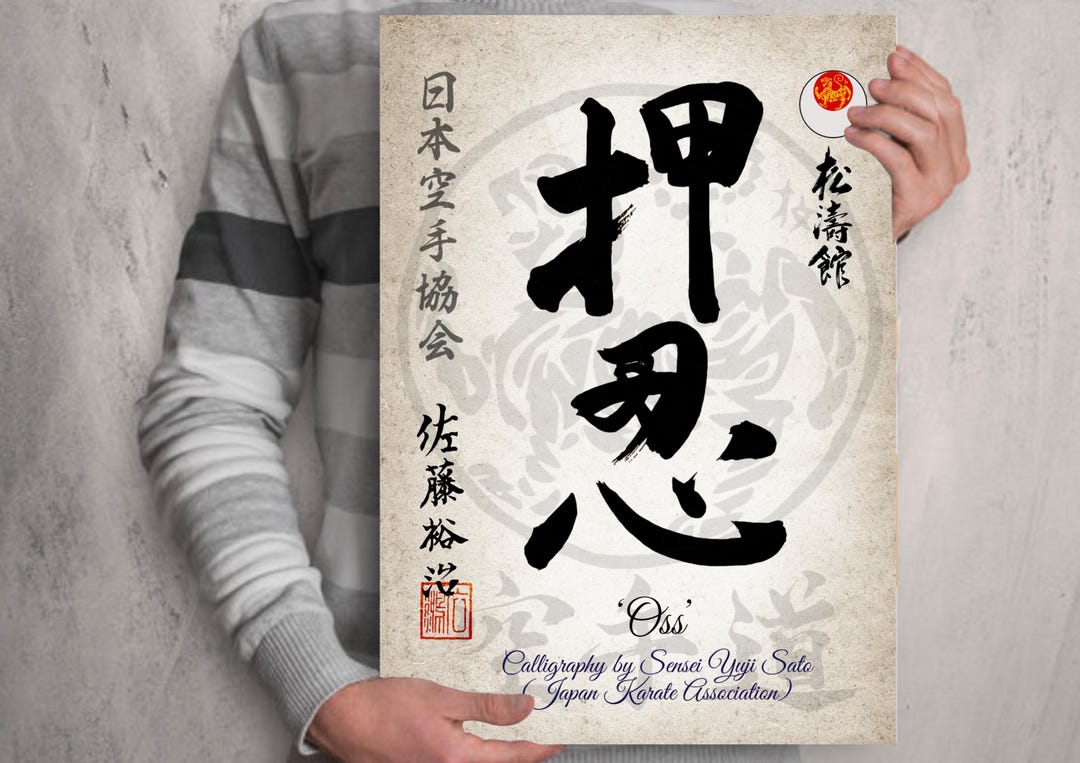 松濤館
押忍
日本空手協会
佐藤裕治
空手道
‘Oss’
Calligraphy by Sensei Yuji Sato
(Japan Karate Association)